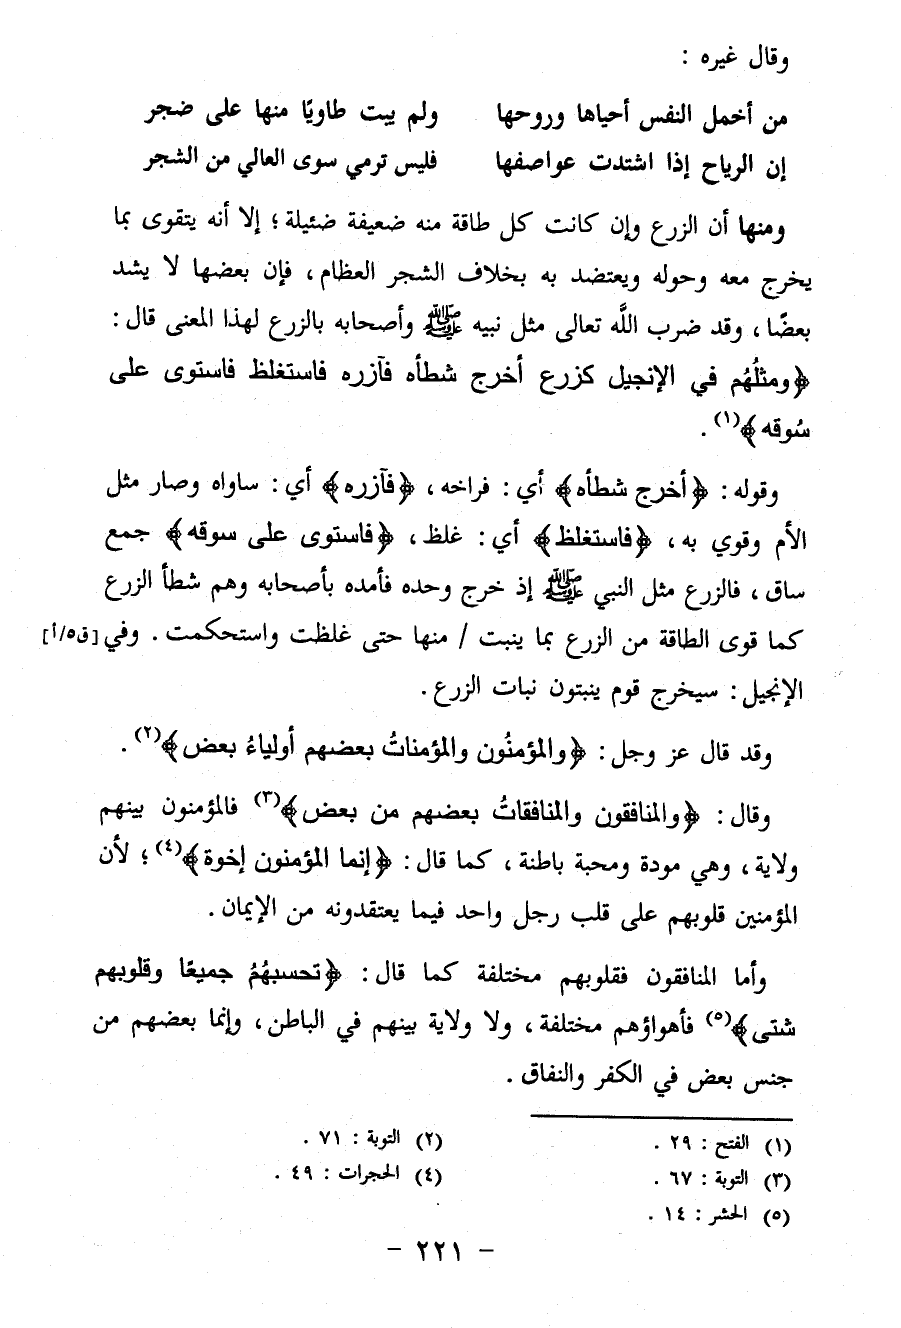 وقال غيره :
من أخمل النفس أحياها وروحها ولم يبت طاويًا منها على ضجر
إن الرياح إذا اشتدت عواصفها فليس ترمي سوى العالي من الشجر
ومنها أن الزرع وإن كانت كل طاقة منه ضعيفة ضئيلة؛ إلا أنه يتقوى بما
يخرج معه وحوله ويعتضد به بخلاف الشجر العظام، فإن بعضها لا يشد
بعضًا، وقد ضرب اللَّه تعالى مثل نبيه ﷺ وأصحابه بالزرع لهذا المعنى قال :
﴿ومثلُهُم في الإنجيل كزرع أخرج شطأه فآزره فاستغلظ فاستوى على
سُوقه﴾(١) .
وقوله : ﴿أخرج شطأه﴾ أي : فراخه، ﴿فآزره﴾ أي : ساواه وصار مثل
الأم وقوي به، ﴿فاستغلظ﴾ أي : غلظ، ﴿فاستوى على سوقه﴾ جمع
ساق، فالزرع مثل النبي ﷺ إذ خرج وحده فأمده بأصحابه وهم شطأ الزرع
كما قوى الطاقة من الزرع بما ينبت / منها حتى غلظت واستحكمت . وفي [ق٥/أ]
الإنجيل : سيخرج قوم ينبتون نبات الزرع .
وقد قال عز وجل : ﴿والمؤمنُون والمؤمناتُ بعضهم أولياءُ بعض﴾(٢) .
وقال : ﴿والمنافقون والمنافقاتُ بعضهم من بعض﴾(٣) فالمؤمنون بينهم
ولاية، وهي مودة ومحبة باطنة، كما قال : ﴿إنما المؤمنون إخوة﴾(٤)؛ لأن
المؤمنين قلوبهم على قلب رجل واحد فيما يعتقدونه من الإيمان .
وأما المنافقون فقلوبهم مختلفة كما قال : ﴿تحسبهُمُ جميعًا وقلوبهم
شتى﴾(٥) فأهواؤهم مختلفة، ولا ولاية بينهم في الباطن، وإنما بعضهم من
جنس بعض في الكفر والنفاق .
(١) الفتح : ٢٩ . (٢) التوبة : ٧١ .
(٣) التوبة : ٦٧ . (٤) الحجرات : ٤٩ .
(٥) الحشر : ١٤ .
- ٢٢١ -